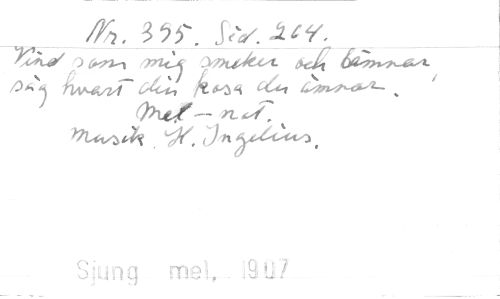 Nr. 395. Sid. 264.
Vind som mig smeker och lämnar,
säg hvart din kosa du ämnar.
Mel-not.
Musik. H. Ingelius.
Sjung mel, 1907